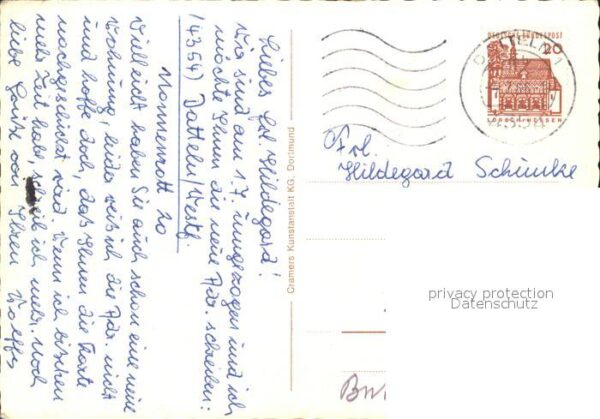 Liebes Frl. Hildegard!
Wir sind am 1.7. umgezogen und ich
möchte Ihnen die neue Adr. schreiben:
(4354) Datteln/Westf.
Nonnenrott 20
Vielleicht haben Sie auch schon eine neue
Wohnung, leider weiß ich die Adr. nicht
und hoffe doch, daß Ihnen die Karte
nachgeschickt wird. Wenn ich bißchen
mehr Zeit habe, schreib ich mehr. Noch
liebe Grüße von Ihren
Cramers Kunstanstalt KG, Dortmund
DEUTSCHE BUNDESPOST
20
LORSCH/HESSEN
DATTELN 1
4354
Frl.
Hildegard Schimke
privacy protection
Datenschutz